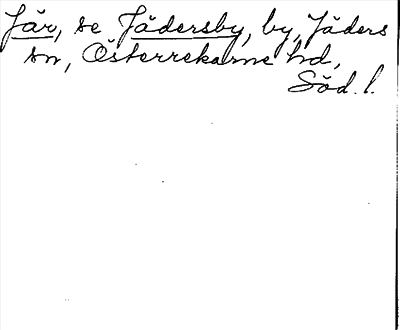 Jär, se Jädersby, by, Jäders
sn, Österrekarne hd,
Söd. l.